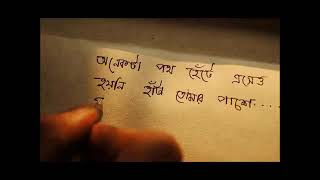 অনেকটা পথ হেঁটে এসেও
হয়নি হাঁটা তোমার পাশে....